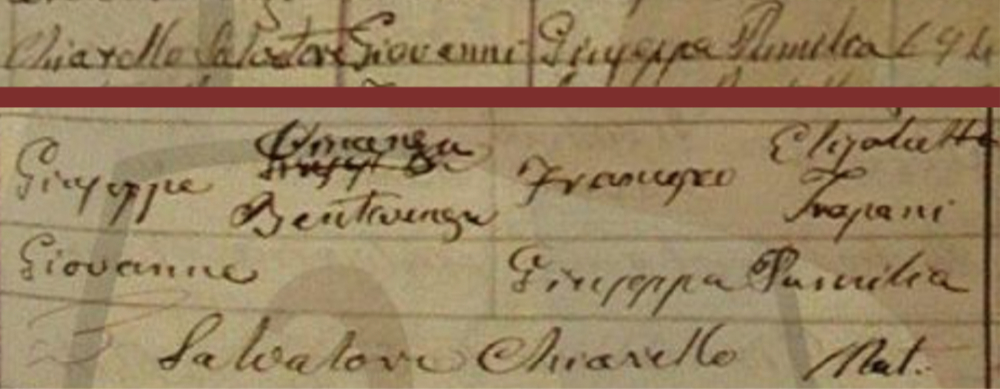 Chiarello Salvatore Giovanni Giuseppa Pumilia
Elizabetta
Giuseppe Francesco
Bentivenga Trapani
Giovanne Giuseppa Pumilia
Salvatore Chiarello Nat.